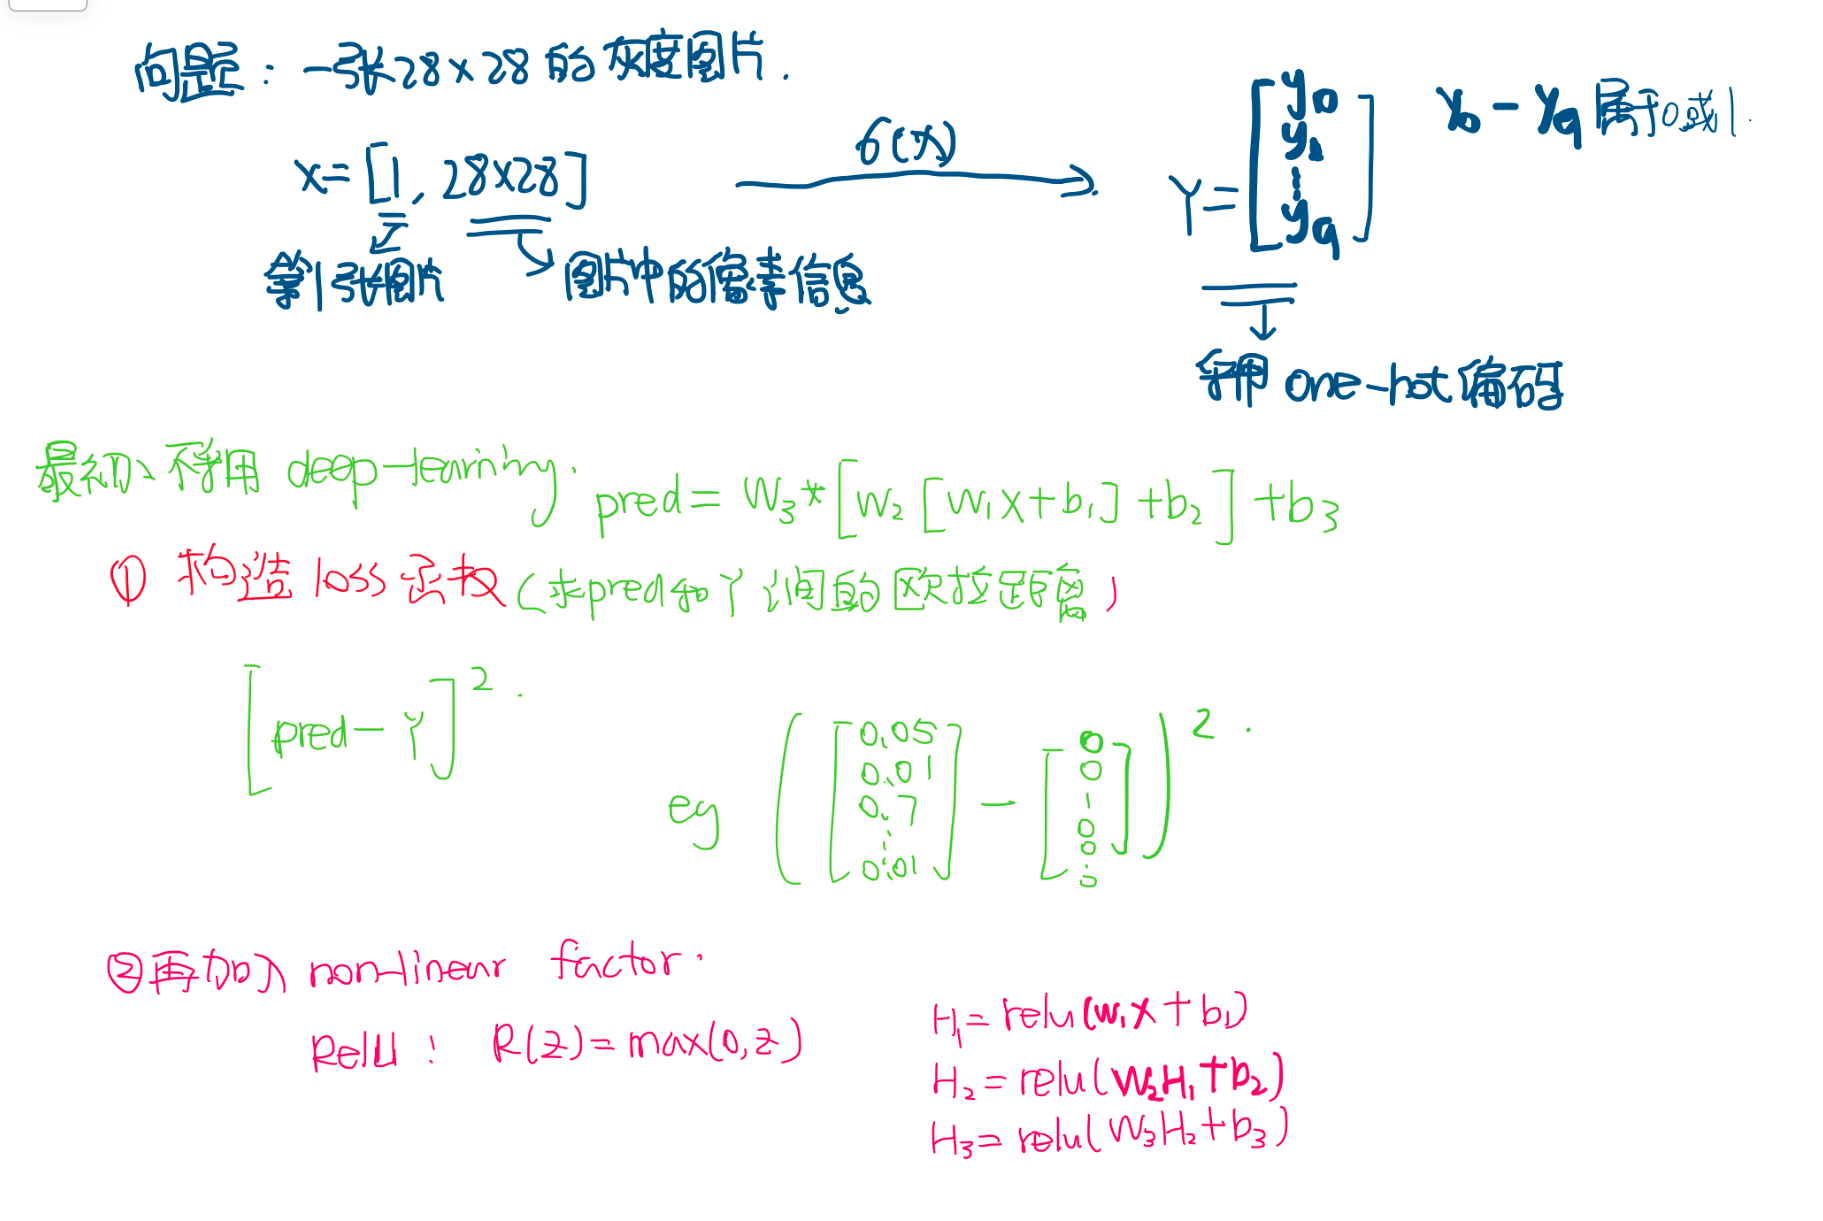 问题：一张28×28的灰度图片.
x=[1, 28×28]
σ(x)
Y=[y0 y1 ⋮ y9]
y0-y9属于0或1.
第1张图片
图片中的像素信息
采用one-hot编码
最初、不采用 deep-learning.
pred= W3*[W2[W1X+b1]+b2]+b3
① 构造 loss 函数(求pred和Y间的欧拉距离)
[pred-Y]².
eg ([0.05 0.01 0.7 ⋮ 0.01] - [0 0 1 0 0 ⋮])².
②再加入 non-linear factor.
RelU: R(z)=max(0,z)
H1=relu(W1X+b1)
H2=relu(W2H1+b2)
H3=relu(W3H2+b3)